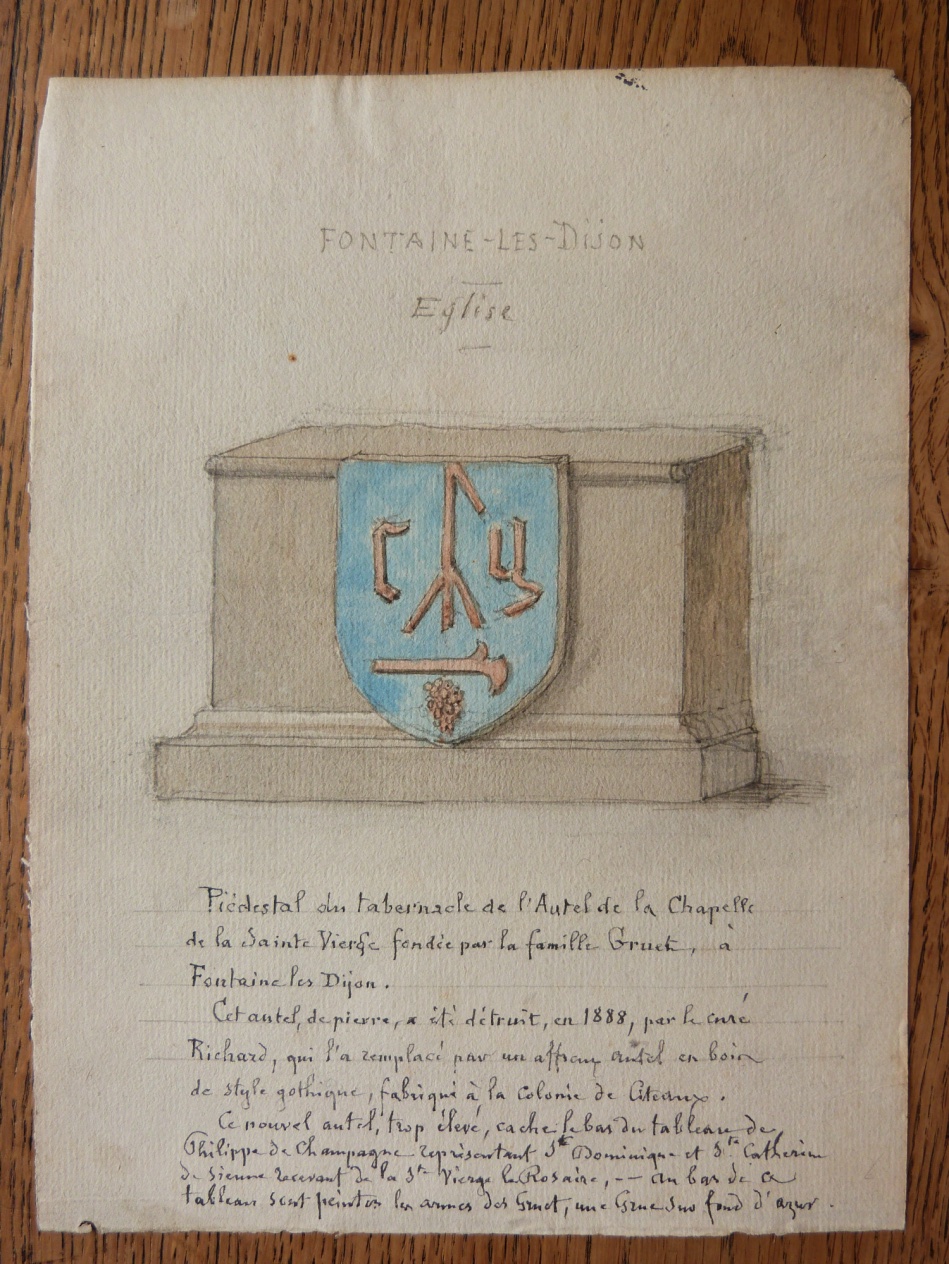 FONTAINE-LES-DIJON
Eglise
C y
Piédestal du tabernacle de l'Autel de la Chapelle
de la Sainte Vierge fondée par la famille Gruet, à
Fontaine les Dijon.
Cet autel, de pierre, a été détruit, en 1888, par le curé
Richard, qui l'a remplacé par un affreux autel en bois
de style gothique, fabriqué à la Colonie de Citeaux.
Ce nouvel autel, trop élevé, cache le bas du tableau de
Philippe de Champagne représentant St Dominique et Ste Catherine
de Sienne recevant de la Ste Vierge le Rosaire, -- au bas de ce
tableau sont peintes les armes des Gruet, une Grue sur fond d'azur.